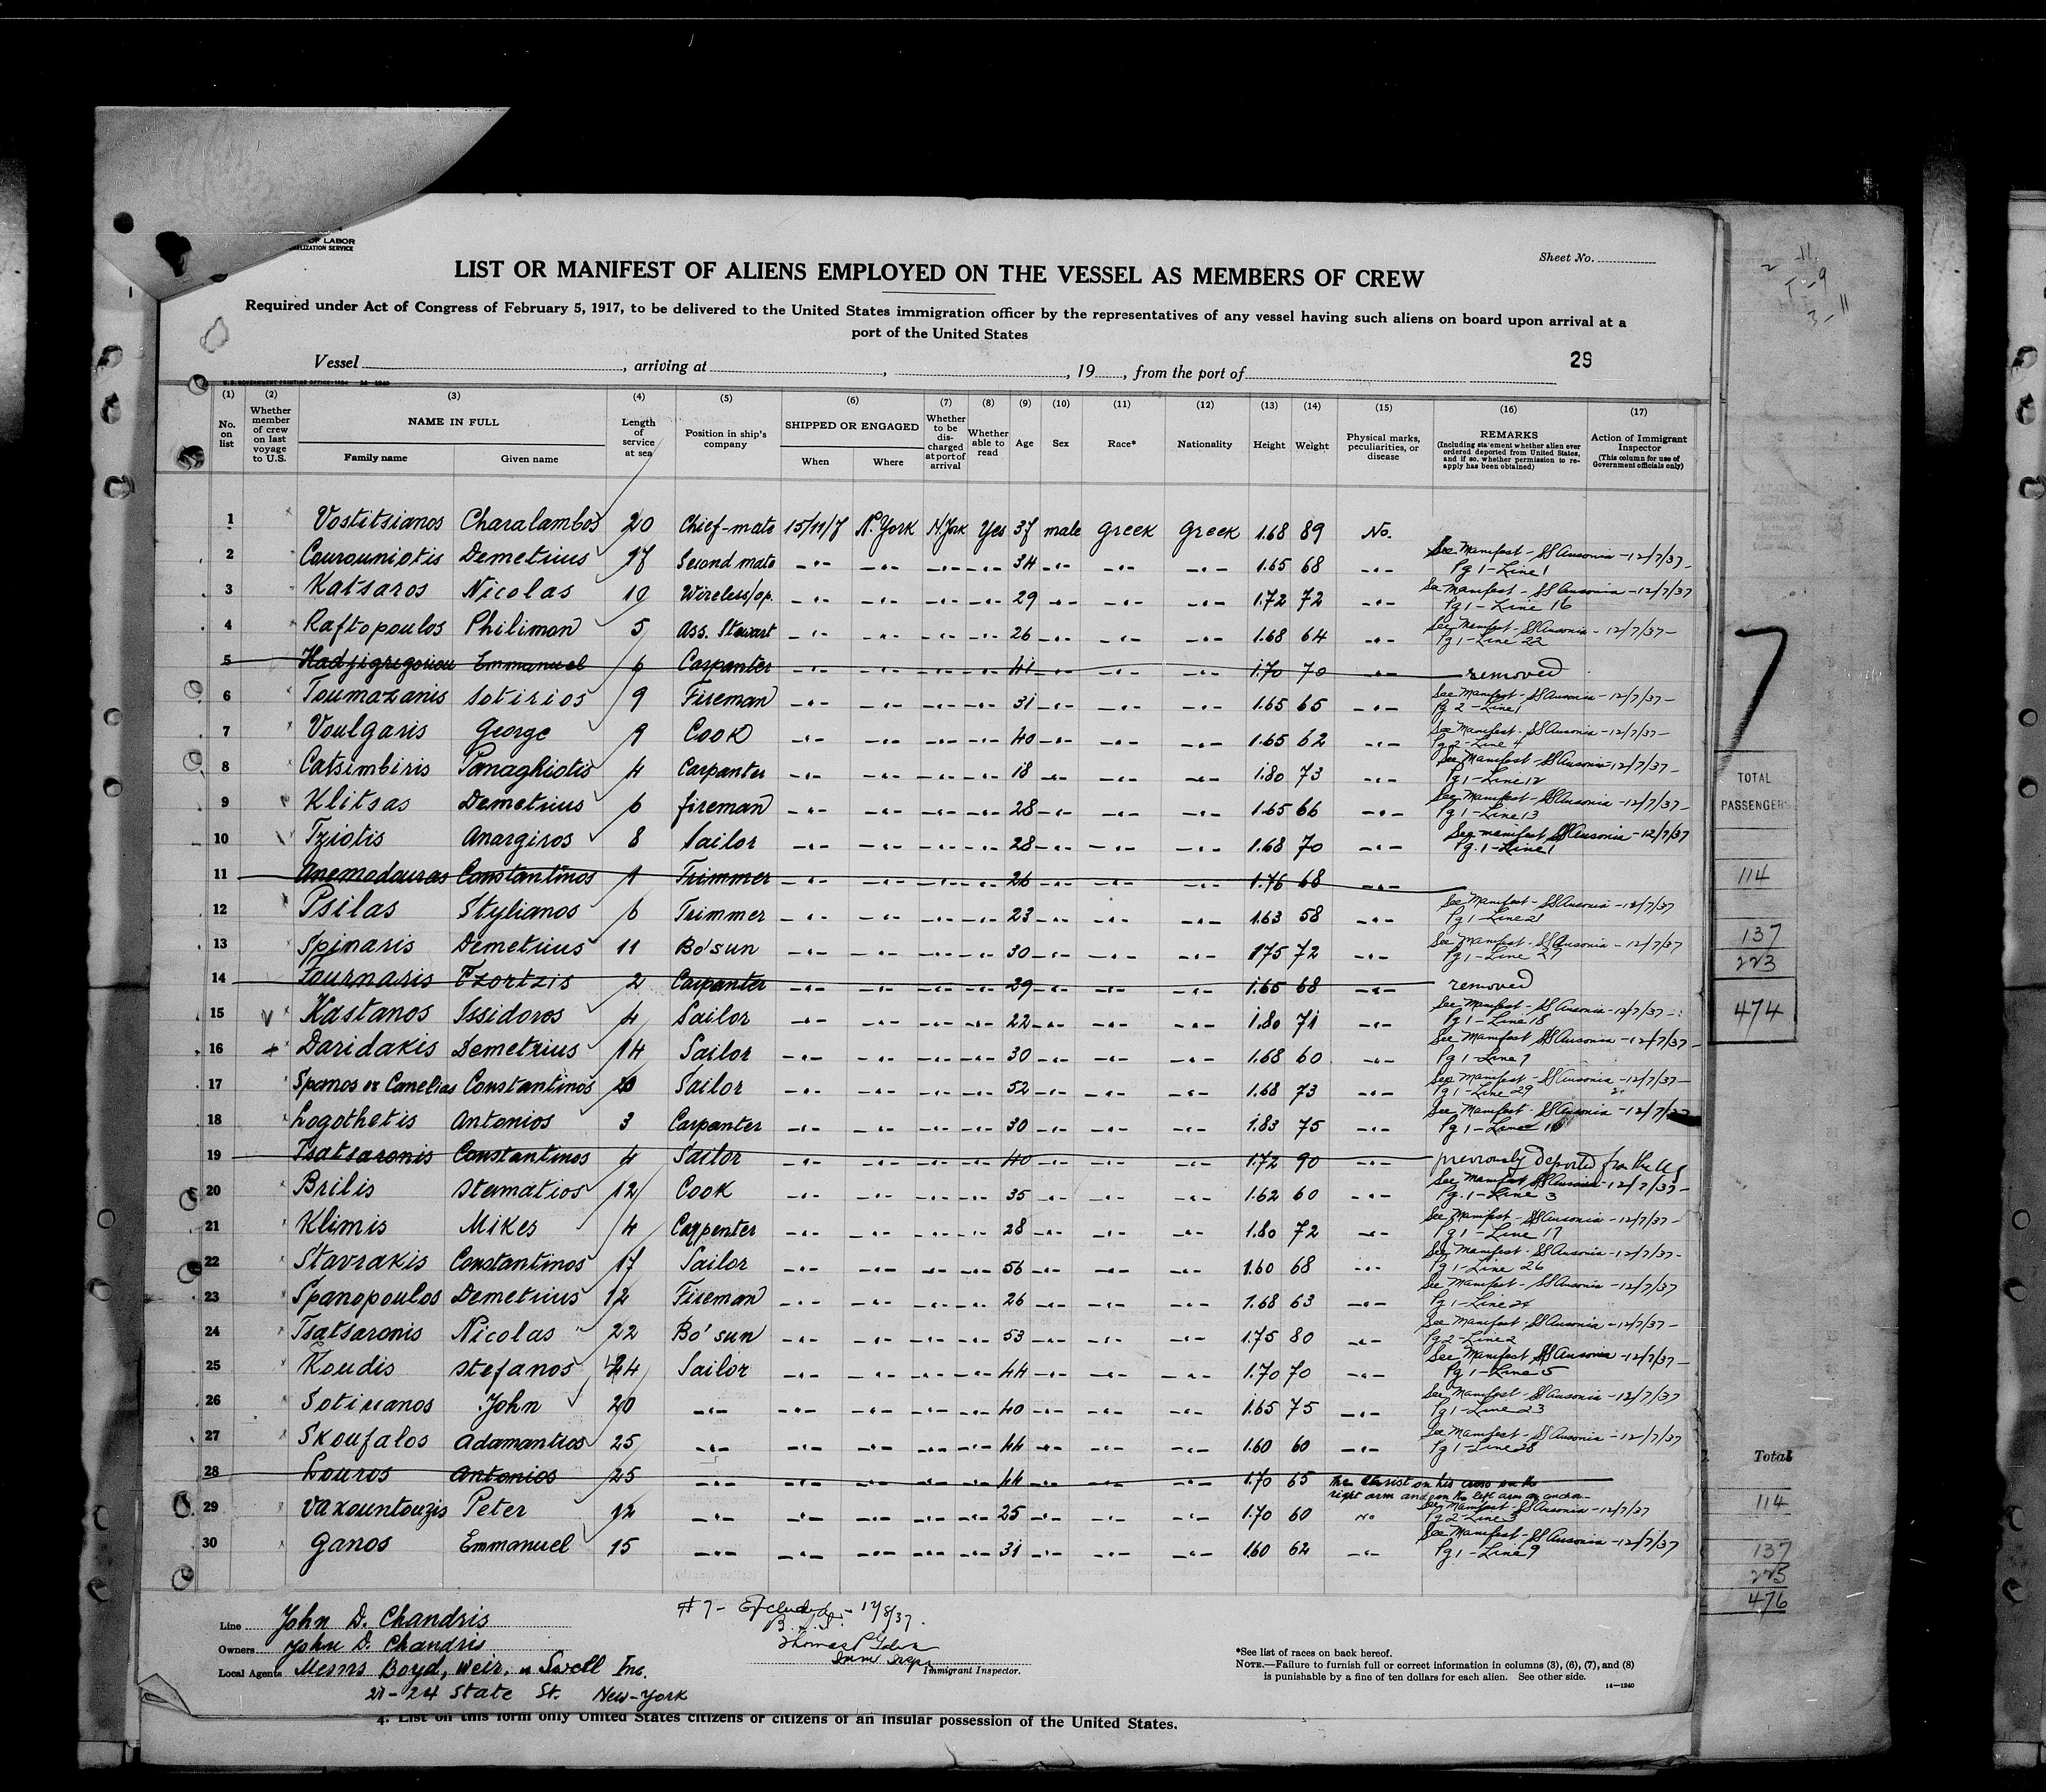 OF LABOR
LIZATION SERVICE
Sheet No.
LIST OR MANIFEST OF ALIENS EMPLOYED ON THE VESSEL AS MEMBERS OF CREW
Required under Act of Congress of February 5, 1917, to be delivered to the United States immigration officer by the representatives of any vessel having such aliens on board upon arrival at a
port of the United States
29
Vessel , arriving at , , 19 , from the port of
(1) (2) (3) (4) (5) (6) (7) (8) (9) (10) (11) (12) (13) (14) (15) (16) (17)
No. on list
Whether member of crew on last voyage to U.S.
NAME IN FULL
Family name Given name
Length of service at sea
Position in ship's company
SHIPPED OR ENGAGED
When Where
Whether to be discharged at port of arrival
Whether able to read
Age
Sex
Race*
Nationality
Height
Weight
Physical marks, peculiarities, or disease
REMARKS
(Including statement whether alien ever ordered deported from United States, and if so, whether permission to reapply has been obtained)
Action of Immigrant Inspector
(This column for use of Government officials only)
1 Vostitsianos Charalambos 20 Chief-mate 15/11/7 N. York N. York Yes 37 male Greek Greek 1.68 89 No.
2 Courouniotis Demetrius 17 Second mate -"- -"- -"- -"- 34 -"- -"- -"- 1.65 68 -"- See Manifest - SS Ausonia - 12/7/37 - Pg 1 - Line 1
3 Katsaros Nicolas 10 Wireless/op. -"- -"- -"- -"- 29 -"- -"- -"- 1.72 72 -"- See Manifest - SS Ausonia - 12/7/37 Pg 1 - Line 16
4 Raftopoulos Philimon 5 Ass. Stewart -"- -"- -"- -"- 26 -"- -"- -"- 1.68 64 -"- See Manifest - SS Ausonia - 12/7/37 - Pg 1 - Line 22
5 Hadjigregoriou Emmanuel 6 Carpanter -"- -"- -"- -"- 41 -"- -"- -"- 1.70 70 -"- removed
6 Toumazanis Sotirios 9 Fireman -"- -"- -"- -"- 31 -"- -"- -"- 1.65 65 -"- See Manifest - SS Ausonia - 12/7/37 - Pg 2 - Line 1
7 Voulgaris George 9 Cook -"- -"- -"- -"- 40 -"- -"- -"- 1.65 62 -"- See Manifest - SS Ausonia - 12/7/37 - Pg 2 - Line 4
8 Catsimbiris Panaghiotis 4 Carpanter -"- -"- -"- -"- 18 -"- -"- -"- 1.80 73 -"- See Manifest - SS Ausonia - 12/7/37 - Pg 1 - Line 12
9 Klitsas Demetrius 6 fireman -"- -"- -"- -"- 28 -"- -"- -"- 1.65 66 -"- See Manifest - SS Ausonia - 12/7/37 - Pg 1 - Line 13
10 Tziotis Anargiros 8 Sailor -"- -"- -"- -"- 28 -"- -"- -"- 1.68 70 -"- See manifest SS Ausonia - 12/7/37 Pg. 1 - Line 1
11 Anemodouras Constantinos 1 Trimmer -"- -"- -"- -"- 26 -"- -"- -"- 1.76 68 -"-
12 Psilas Stylianos 6 Trimmer -"- -"- -"- -"- 23 -"- -"- -"- 1.63 58 -"- See Manifest - SS Ausonia - 12/7/37 Pg 1 - Line 21
13 Spinaris Demetrius 11 Bo'sun -"- -"- -"- -"- 30 -"- -"- -"- 175 72 -"- See Manifest - SS Ausonia - 12/7/37 Pg 1 - Line 27
14 Fournaris Tzortzis 2 Carpanter -"- -"- -"- -"- 39 -"- -"- -"- 1.65 68 -"- removed
15 Kastanos Issidoros 4 Sailor -"- -"- -"- -"- 22 -"- -"- -"- 1.80 71 -"- See Manifest - SS Ausonia - 12/7/37 - Pg 1 - Line 18
16 Daridakis Demetrius 14 Sailor -"- -"- -"- -"- 30 -"- -"- -"- 1.68 60 -"- See Manifest SS Ausonia - 12/7/37 - Pg 1 - Line 7
17 Spanos or Canelias Constantinos 20 Sailor -"- -"- -"- -"- 52 -"- -"- -"- 1.68 73 -"- See Manifest - SS Ausonia - 12/7/37 - Pg 1 - Line 29
18 Logothetis Antonios 3 Carpanter -"- -"- -"- -"- 30 -"- -"- -"- 1.83 75 -"- See Manifest - SS Ausonia - 12/7/37 Pg 1 - Line
19 Tsatsaronis Constantinos 4 Sailor -"- -"- -"- -"- 40 -"- -"- -"- 1.72 90 -"- previously deported from the US
20 Brilis Stamatios 12 Cook -"- -"- -"- -"- 35 -"- -"- -"- 1.62 60 -"- See Manifest SS Ausonia - 12/7/37 - Pg. 1 - Line 3
21 Klimis Mikes 4 Carpenter -"- -"- -"- -"- 28 -"- -"- -"- 1.80 72 -"- See Manifest - SS Ausonia - 12/7/37 - Pg 1 - Line 17
22 Stavrakis Constantinos 17 Sailor -"- -"- -"- -"- 56 -"- -"- -"- 1.60 68 -"- See Manifest - SS Ausonia - 12/7/37 - Pg 1 - Line 26
23 Spanopoulos Demetrius 12 Fireman -"- -"- -"- -"- 26 -"- -"- -"- 1.68 63 -"- See Manifest - SS Ausonia - 12/7/37 Pg 1 - Line 24
24 Tsatsaronis Nicolas 22 Bo'sun -"- -"- -"- -"- 53 -"- -"- -"- 1.75 80 -"- See Manifest - SS Ausonia - 12/7/37 - Pg 2 - Line 2
25 Koudis Stefanos 24 Sailor -"- -"- -"- -"- 44 -"- -"- -"- 1.70 70 -"- See Manifest SS Ausonia - 12/7/37 - Pg 1 - Line 5
26 Sotirianos John 20 -"- -"- -"- -"- -"- 40 -"- -"- -"- 1.65 75 -"- See Manifest - SS Ausonia - 12/7/37 Pg 1 - Line 23
27 Skoufalos Adamantios 25 -"- -"- -"- -"- -"- 44 -"- -"- -"- 1.60 60 -"- See Manifest - SS Ausonia - 12/7/37 Pg 1 - Line 28
28 Louros Antonios 25 -"- -"- -"- -"- -"- 44 -"- -"- -"- 1.70 65 the Christ on his cross on the right arm and on the left arm an anchor
29 Vaxountouzis Peter 12 -"- -"- -"- -"- -"- 25 -"- -"- -"- 1.70 60 No See Manifest - SS Ausonia - 12/7/37 Pg 2 - Line 3
30 Ganos Emmanuel 15 -"- -"- -"- -"- -"- 31 -"- -"- -"- 1.60 62 -"- See Manifest - SS Ausonia - 12/7/37 Pg 1 - Line 9
Line John D. Chandris
Owners John D. Chandris
Local Agents Messrs Boyd, Weir, & Sewell Inc.
24 State St. New-York
# 7 - Excluded - 12/8/37.
B.S.I.
Immigrant Inspector.
*See list of races on back hereof.
NOTE.—Failure to furnish full or correct information in columns (3), (6), (7), and (8)
is punishable by a fine of ten dollars for each alien. See other side.
14—1240
4. List on this form only United States citizens or citizens of an insular possession of the United States.
7
TOTAL
PASSENGERS
114
137
223
474
Total
114
137
225
476